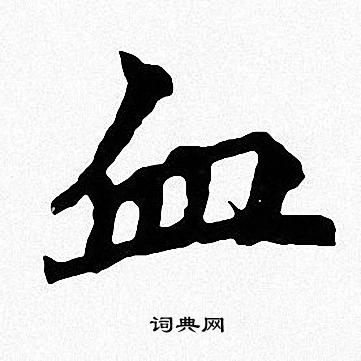 血
词典网